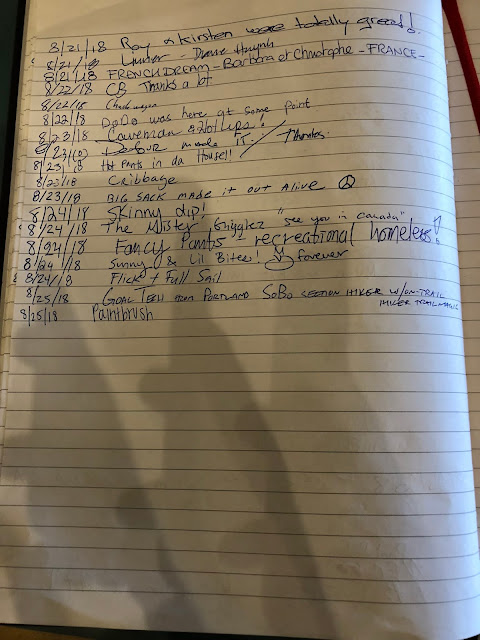 8/21/18 Ray & Kirsten were totally great!
8/21/18 Hunter - Duane Huynh
8/21/18 FRENCH DREAM - Barbara et Christophe - FRANCE -
8/22/18 CB Thanks a lot
8/22/18
8/22/18 DODO was here at some point
8/23/18 Caveman & Hot Lips!
8/23/18 made it! Thanks
8/23/18 Hot Pants in da House!!
8/23/18 Cribbage
8/23/18 BIG SACK MADE IT OUT ALIVE
8/24/18 Skinny dip!
8/24/18 The Mister, Gigglez "see you in canada"
8/24/18 Fancy Pants - recreational homeless!
8/24/18 Sunny & Lil Bites! forever
8/24/18 Flick + Full Sail
8/25/18 GOAL FROM PORTLAND SOBO SECTION HIKER W/ON-TRAIL
HIKER TRAIL MAGIC
8/25/18 Paintbrush